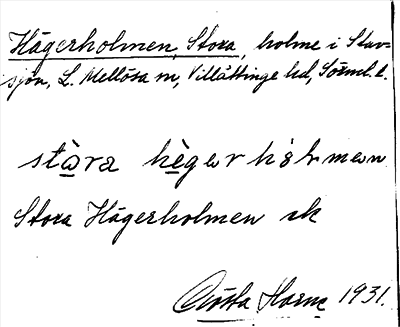 Hägerholmen, Stora, holme i Stav-
sjön, L. Mellösa sn, Villåttinge hd, Sörml. l.
stòra hègərhålmən
Stora Hägerholmen ek
Gösta Harne 1931.